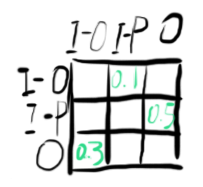 I-O I-P O
I-O 0.1
I-P 0.5
O 0.3